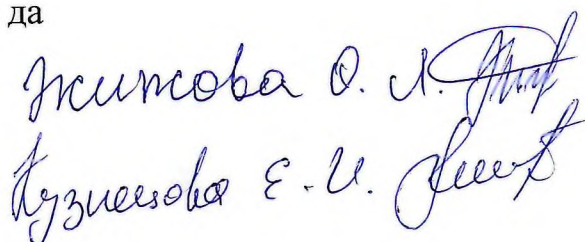 да
Жижова О. Л.
Кузнецова Е. И.